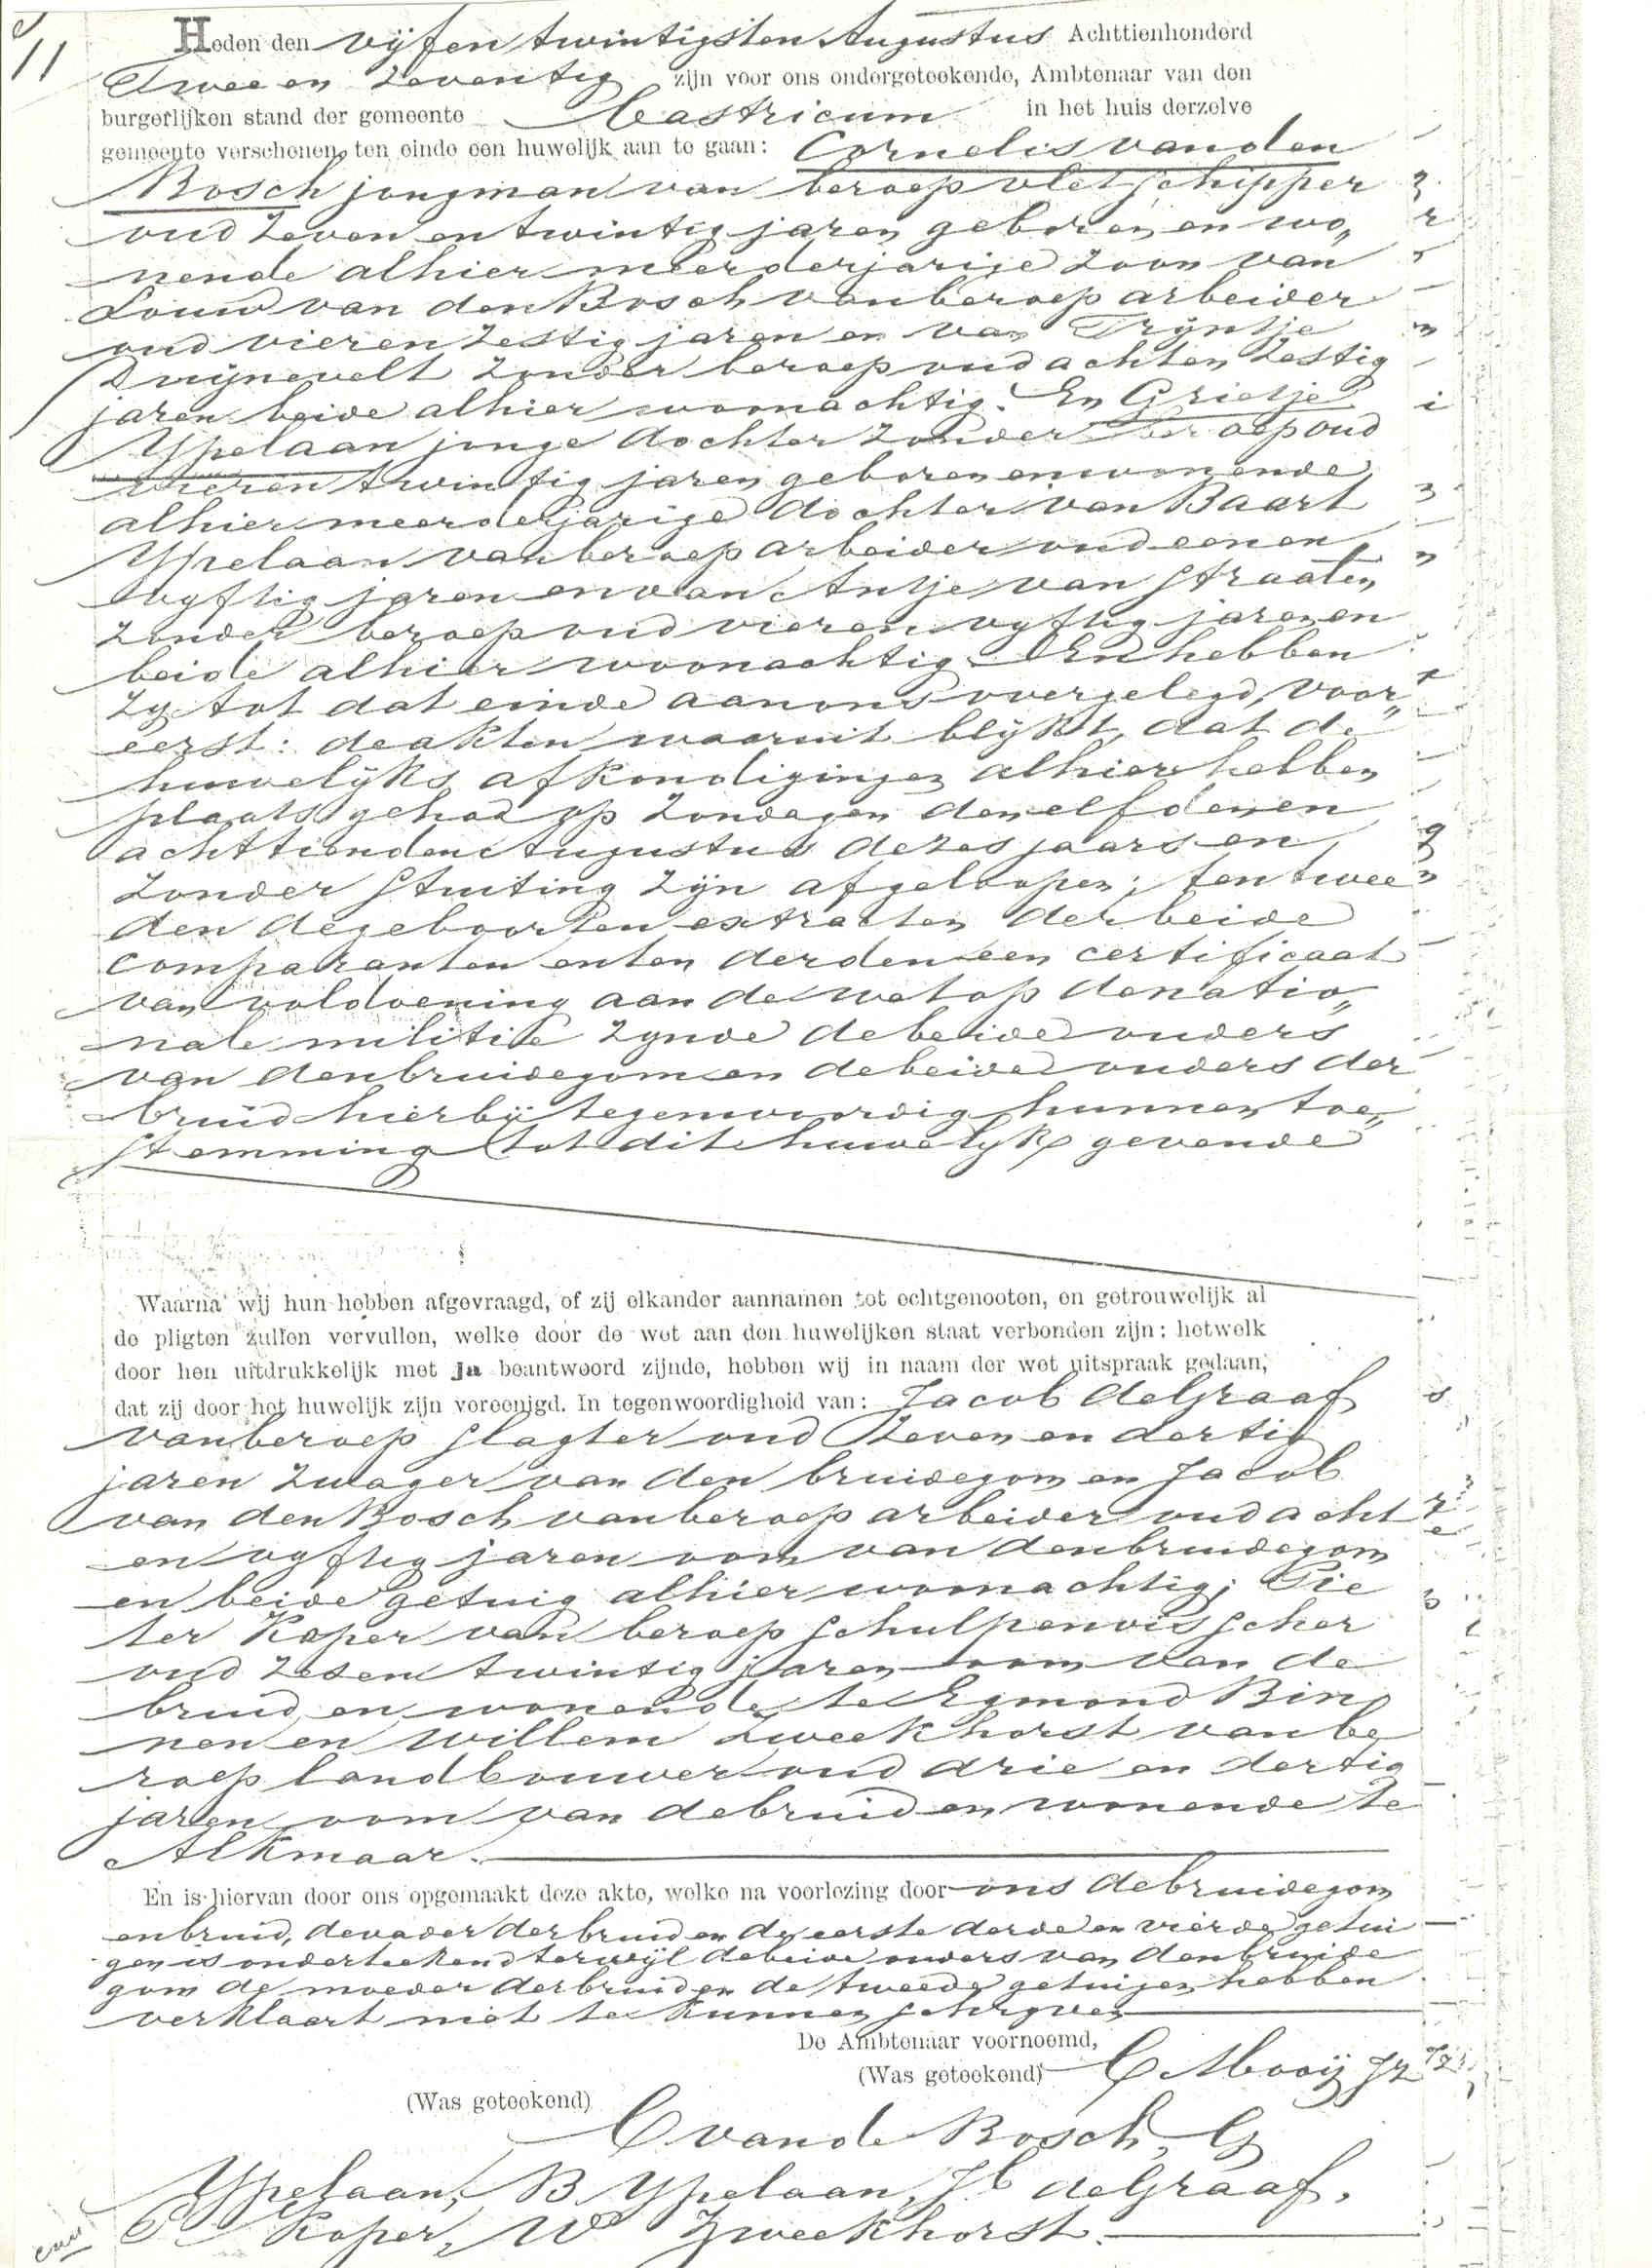 11
Heden den vijfentwintigsten Augustus Achttienhonderd
Twee en zeventig zijn voor ons ondergeteekende, Ambtenaar van den
burgerlijken stand der gemeente Castricum in het huis derzelve
gemeente verschenen, ten einde een huwelijk aan te gaan: Cornelis van den
Bosch jongman van beroep vletschipper
oud zeven en twintig jaren geboren en wo„
nende alhier meerderjarige zoon van
Louw van den Bosch van beroep arbeider
oud vieren zestig jaren en van Trijntje
Duijnevelt zonder beroep oud achten zestig
jaren beide alhier woonachtig. En Grietje
Ypelaan jonge dochter zonder beroep oud
vieren twintig jaren geboren en wonende
alhier meerderjarige dochter van Baart
Ypelaan van beroep arbeider oud eenen
vyftig jaren en van Antje van Straaten
zonder beroep oud vieren vyftig jaren en
beide alhier woonachtig. En hebben
zy tot dat einde aan ons overgelegd, voor„
eerst: de akten waaruit blijkt, dat de
huwelijks afkondigingen alhier hebben
plaats gehad op zondagen den elfden en
achttienden Augustus dezes jaars en
zonder stuiting zijn afgeloopen; ten twee
den de geboorten extracten der beide
comparanten en ten derden een certificaat
van voldoening aan de wet op de natio„
nale militie zynde de beide ouders
van den bruidegom en de beide ouders der
bruid hierbij tegenwoordig hunnen toe„
stemming tot dit huwelyk gevende
Waarna wij hun hebben afgevraagd, of zij elkander aannamen tot echtgenooten, en getrouwelijk al
de pligten zullen vervullen, welke door de wet aan den huwelijken staat verbonden zijn: hetwelk
door hen uitdrukkelijk met ja beantwoord zijnde, hebben wij in naam der wet uitspraak gedaan,
dat zij door het huwelijk zijn vereenigd. In tegenwoordigheid van: Jacob de Graaf
van beroep slagter oud zeven en dertig
jaren zwager van den bruidegom en Jacob
van den Bosch van beroep arbeider oud acht
en vyftig jaren oom van den bruidegom
en beide getuig alhier woonachtig; Pie
ter Koper van beroep schulpenvisscher
oud zesen twintig jaren oom van de
bruid en wonende te Egmond Bin
nen en Willem Zweekhorst van be
roep landbouwer oud drie en dertig
jaren oom van de bruid en wonende te
Alkmaar.
En is hiervan door ons opgemaakt deze akte, welke na voorlezing door ons de bruidegom
en bruid, de vader der bruid en de eerste derde en vierde getui
gen is onderteekend terwijl de beide ouders van den bruide
gom de moeder der bruid en de tweede getuigen hebben
verklaart niet te kunnen schryven
De Ambtenaar voornoemd,
(Was geteekend) C Mooij Jz
(Was geteekend)
C van de Bosch, G
Ypelaan, B Ypelaan, Jb de Graaf,
P Koper, W Zweekhorst.